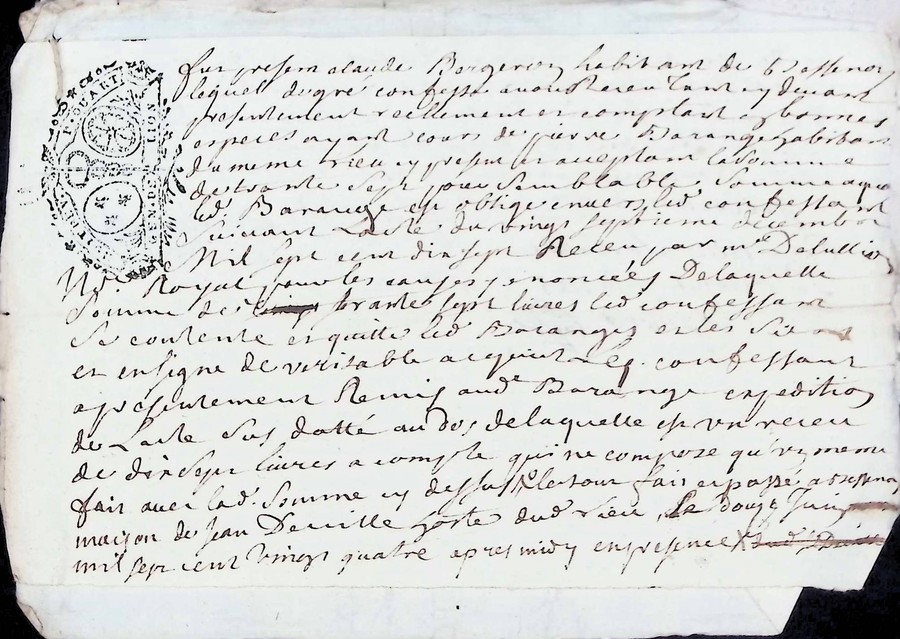 fut presem claude Bergeron habitant de Bessenay
lequel de gré confesse avoir Receu tant cy devant
presentement reellement et comptant en bonnes
especes ayant cours de pierre Barange habitant
du meme lieu cy present et acceptant la somme
de trante sept pour semblable somme a quoy
led. Barange est obligé envers led confessant
suivant l'acte du vingt septieme decembre
Mil sept cent dix sept Receu par me
Nre. Royal pour les causes y enoncées De laquelle
somme de sorante sept livres led confessant
se contente et quitte led Baranges et les siens
et en signe de veritable acquit confessant
a presentement Remis aud. Barange expedition
de l'acte sus datté au dos de laquelle est un receu
de dix sept livres a compte qui ne compose qu'un meme
fait avec lad. somme cy dessus fait et passé a Bessenay
maison de Jean Deville hoste dud. lieu le douze Juin
mil sept cent vingt quatre apres midy en presence